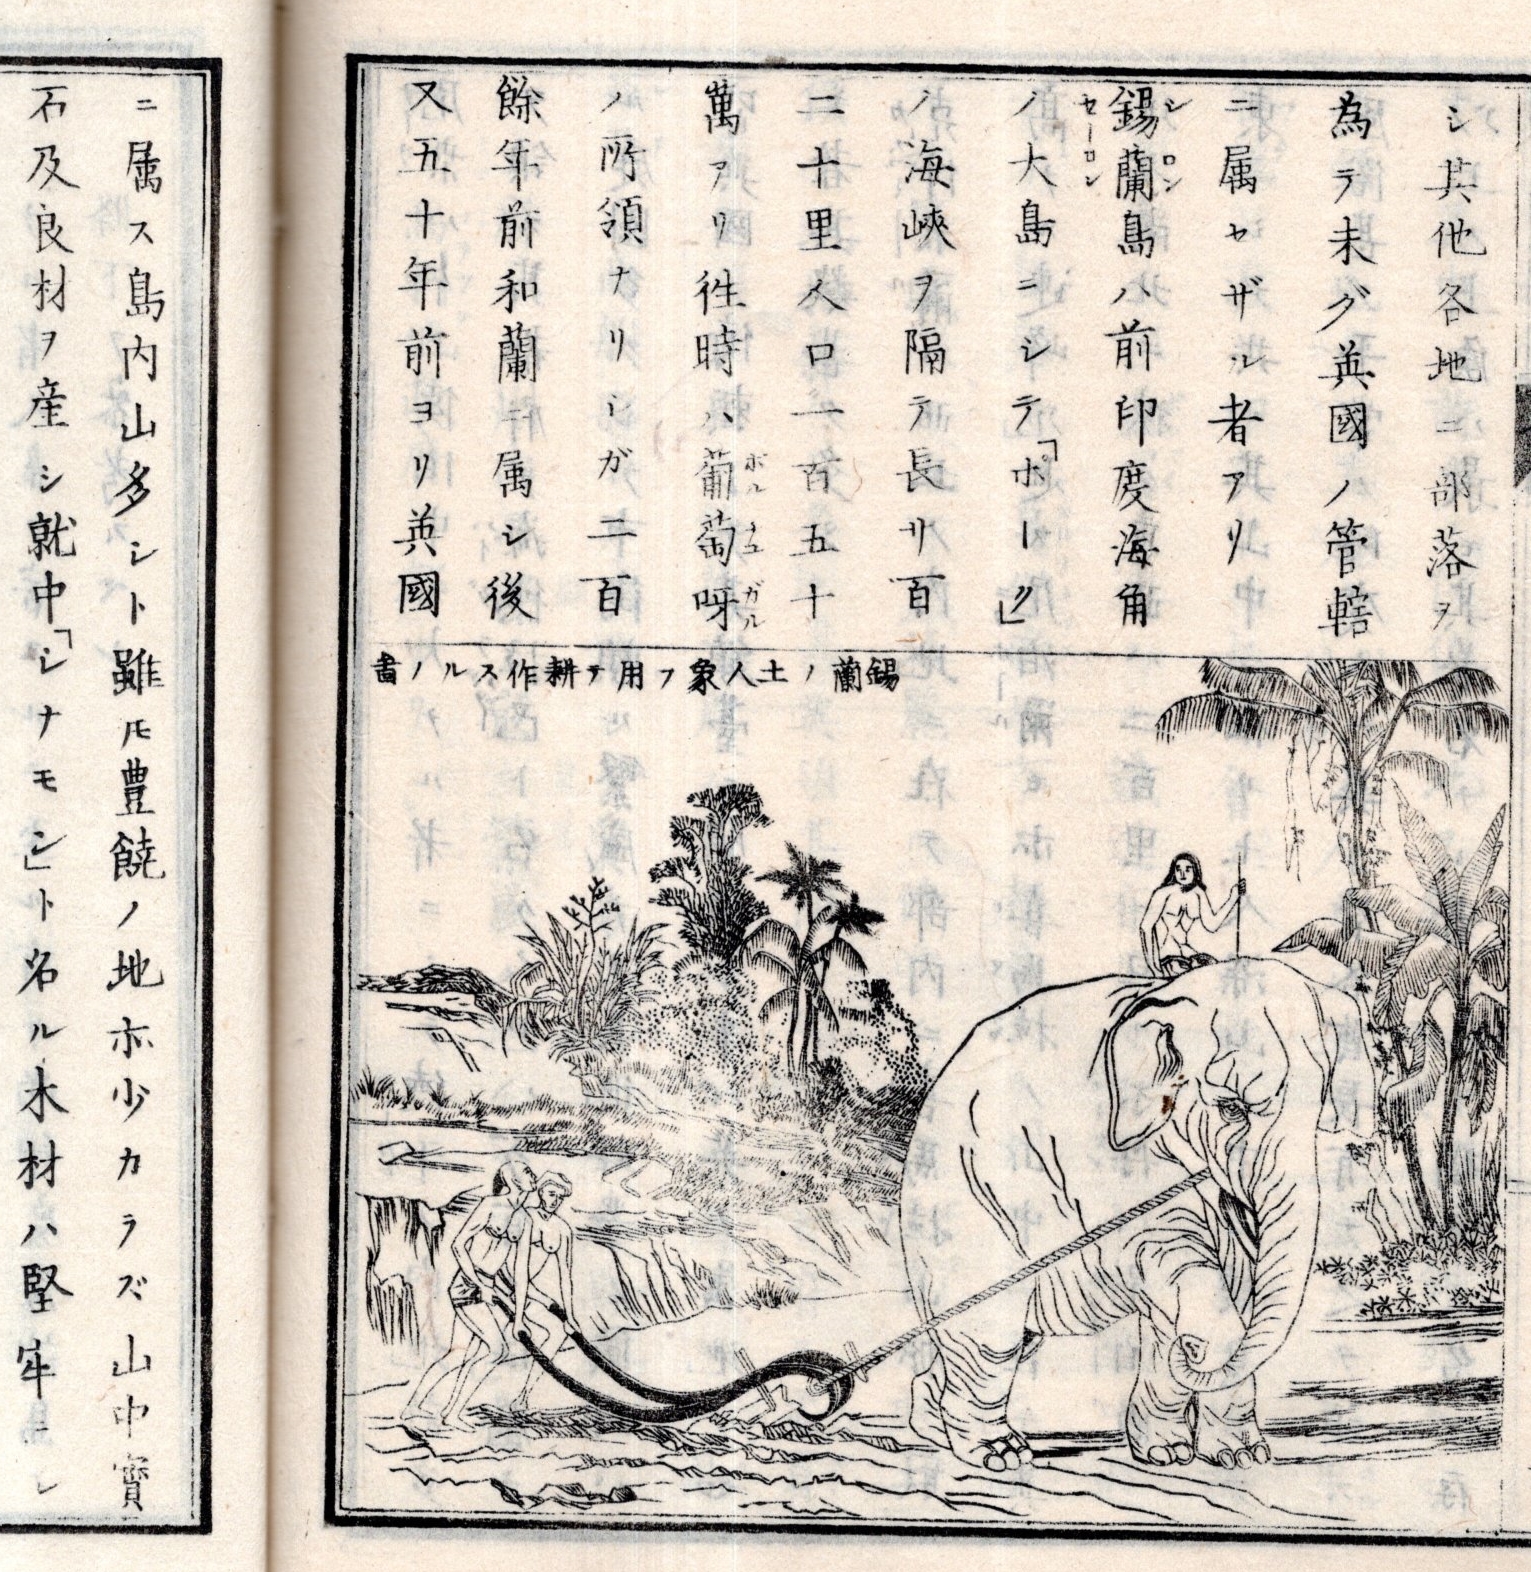 シ其他各地ニ部落ヲ
為テ未グ英國ノ管轄
ニ属セザル者アリ
錫蘭島ハ前印度海角
シロン
セーロン
ノ大島ニシテ「ポーク」
ノ海峽ヲ隔テ長サ百
二十里人口一百五十
萬アリ徃時ハ葡萄呀
ポルチユガル
ノ所領ナリシガ二百
餘年前和蘭ニ属シ後
又五十年前ヨリ英國
錫蘭ノ土人象ヲ用テ耕作スルノ畵
ニ属ス島内山多シト雖𪜈豊饒ノ地亦少カラズ山中寳
石及良材ヲ産シ就中「シナモン」ト名ル木材ハ堅牢ニシ